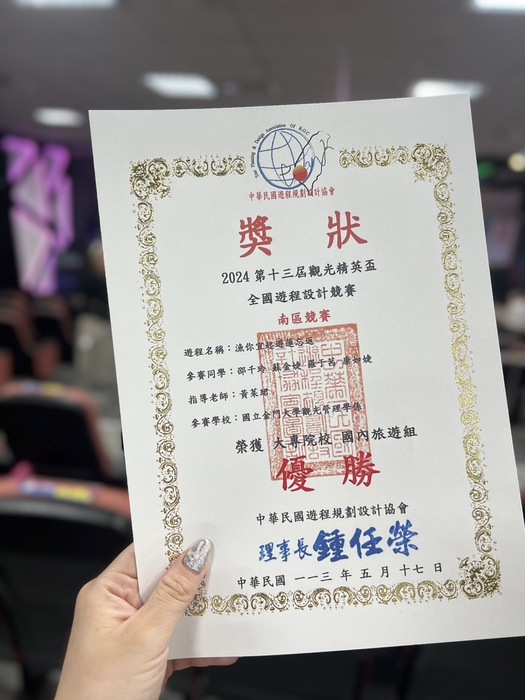 中華民國遊程規劃設計協會
獎狀
2024 第十三屆觀光精英盃
全國遊程設計競賽
南區競賽
遊程名稱：漁你宜起遊蓮忘返
參賽同學：邵千玲 蘇金婕 羅于茜 廖婕
指導老師：黃茱珺
參賽學校：國立金門大學觀光管理學系
榮獲 大專院校 國內旅遊組
優勝
中華民國遊程規劃設計協會
理事長 鍾任榮
中華民國 一一三 年 五 月 十七 日